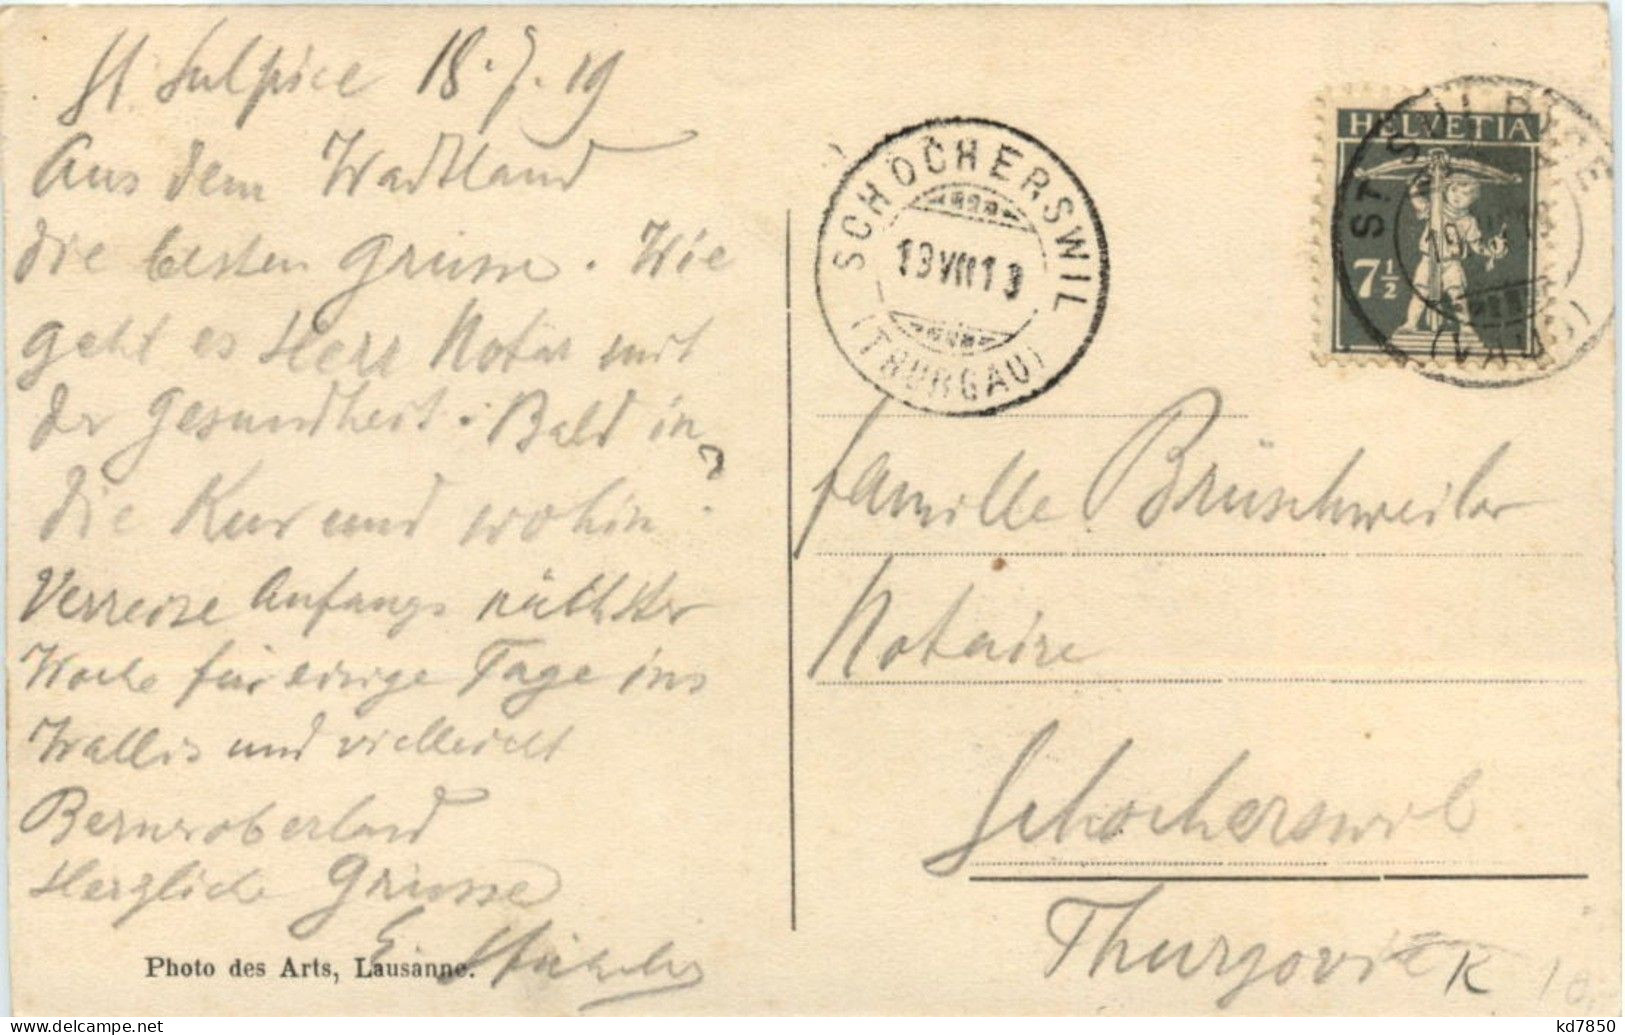 St. Sulpice 18.7.19
Aus dem Wadtland
die besten Grüsse. Wie
geht es Herr Notar mit
der Gesundheit. Bald in
die Kur und wohin?
Verreise Anfangs nächster
Woche für einige Tage ins
Wallis und vielleicht
Berneroberland
Herzliche Grüsse
E.
Photo des Arts, Lausanne.
SCHOCHERSWIL
19 VII 19
(THURGAU)
HELVETIA
7½
ST. SULPICE
(VAUD)
Famille Brüschweiler
Notaire
Schocherswil
Thurgovie
kd7850